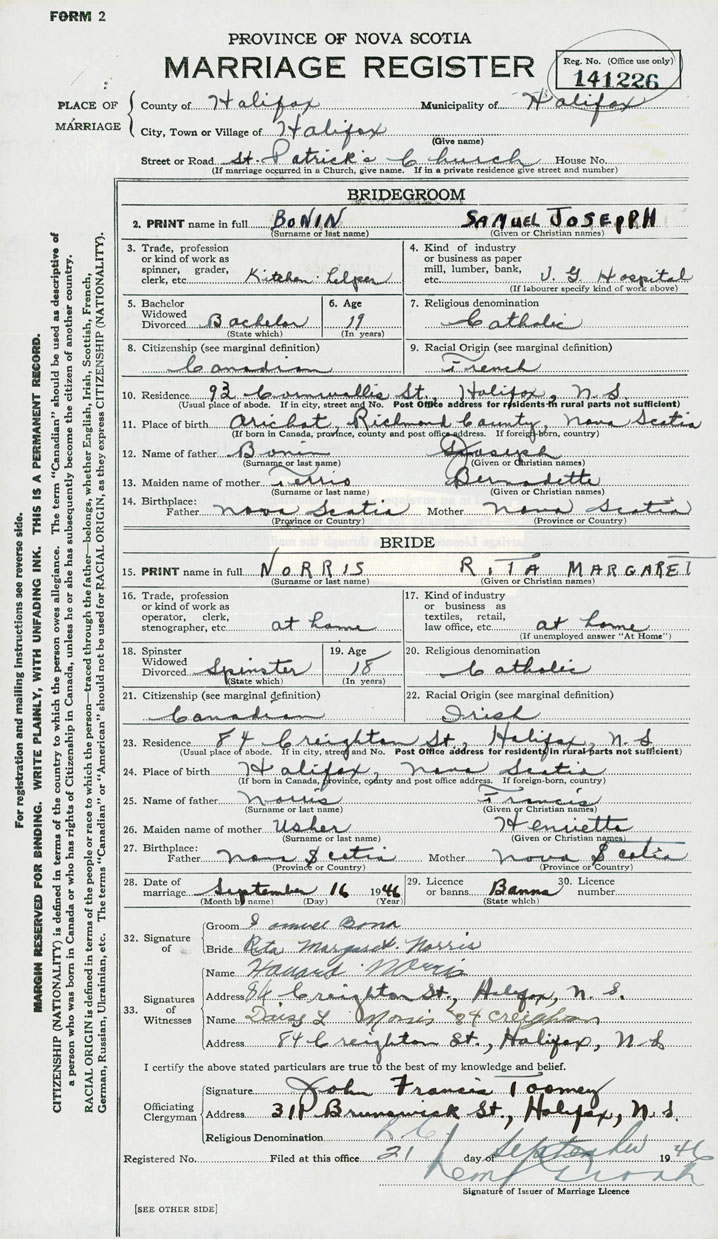 FORM 2
PROVINCE OF NOVA SCOTIA
MARRIAGE REGISTER
Reg. No. (Office use only)
141226
PLACE OF MARRIAGE
County of Halifax Municipality of Halifax
City, Town or Village of Halifax
(Give name)
Street or Road St. Patrick's Church House No.
(If marriage occurred in a Church, give name. If in a private residence give street and number)
BRIDEGROOM
2. PRINT name in full BONIN SAMUEL JOSEPH
(Surname or last name) (Given or Christian names)
3. Trade, profession or kind of work as spinner, grader, clerk, etc. Kitchen helper
4. Kind of industry or business as paper mill, lumber, bank, etc. V. G Hospital
(If labourer specify kind of work above)
5. Bachelor Widowed Divorced Bachelor
(State which)
6. Age 19
(In years)
7. Religious denomination
Catholic
8. Citizenship (see marginal definition)
Canadian
9. Racial Origin (see marginal definition)
French
10. Residence 93 Cornwallis St., Halifax, N. S.
(Usual place of abode. If in city, street and No. Post Office address for residents in rural parts not sufficient)
11. Place of birth Arichat, Richmond County, Nova Scotia
(If born in Canada, province, county and post office address. If foreign-born, country)
12. Name of father Bonin Joseph
(Surname or last name) (Given or Christian names)
13. Maiden name of mother Terrio Bernadette
(Surname or last name) (Given or Christian names)
14. Birthplace:
Father Nova Scotia Mother Nova Scotia
(Province or Country) (Province or Country)
BRIDE
15. PRINT name in full NORRIS RITA MARGARET
(Surname or last name) (Given or Christian names)
16. Trade, profession or kind of work as operator, clerk, stenographer, etc. at home
17. Kind of industry or business as textiles, retail, law office, etc. at home
(If unemployed answer "At Home")
18. Spinster Widowed Divorced Spinster
(State which)
19. Age 18
(In years)
20. Religious denomination
Catholic
21. Citizenship (see marginal definition)
Canadian
22. Racial Origin (see marginal definition)
Irish
23. Residence 84 Creighton St., Halifax, N. S
(Usual place of abode. If in city, street and No. Post Office address for residents in rural parts not sufficient)
24. Place of birth Halifax, Nova Scotia
(If born in Canada, province, county and post office address. If foreign-born, country)
25. Name of father Norris Francis
(Surname or last name) (Given or Christian names)
26. Maiden name of mother Usher Henrietta
(Surname or last name) (Given or Christian names)
27. Birthplace:
Father Nova Scotia Mother Nova Scotia
(Province or Country) (Province or Country)
28. Date of marriage September 16 1946
(Month by name) (Day) (Year)
29. Licence or banns Banns
(State which)
30. Licence number
32. Signature of
Groom Samuel Bona
Bride Rita Margaret Norris
33. Signatures of Witnesses
Name Howard Norris
Address 84 Creighton St., Halifax, N. S.
Name Daisy L Norris 84 Creighton
Address 84 Creighton St., Halifax, N S
I certify the above stated particulars are true to the best of my knowledge and belief.
Officiating Clergyman
Signature John Francis Toomey
Address 311 Brunswick St., Halifax, N. S.
Religious Denomination R C
Registered No. Filed at this office 21 day of September 1946
Signature of Issuer of Marriage Licence
[SEE OTHER SIDE]
For registration and mailing instructions see reverse side.
MARGIN RESERVED FOR BINDING. WRITE PLAINLY, WITH UNFADING INK. THIS IS A PERMANENT RECORD.
CITIZENSHIP (NATIONALITY) is defined in terms of the country to which the person owes allegiance. The term "Canadian" should be used as descriptive of
a person who was born in Canada or who has rights of Citizenship in Canada, unless he or she has subsequently become the citizen of another country.
RACIAL ORIGIN is defined in terms of the people or race to which the person—traced through the father—belongs, whether English, Irish, Scottish, French,
German, Russian, Ukrainian, etc. The terms "Canadian" or "American" should not be used for RACIAL ORIGIN, as they express CITIZENSHIP (NATIONALITY).